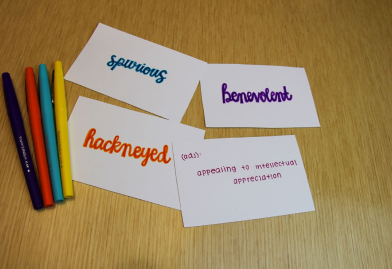 spurious
benevolent
hackneyed
(adj).
appealing to intellectual
appreciation